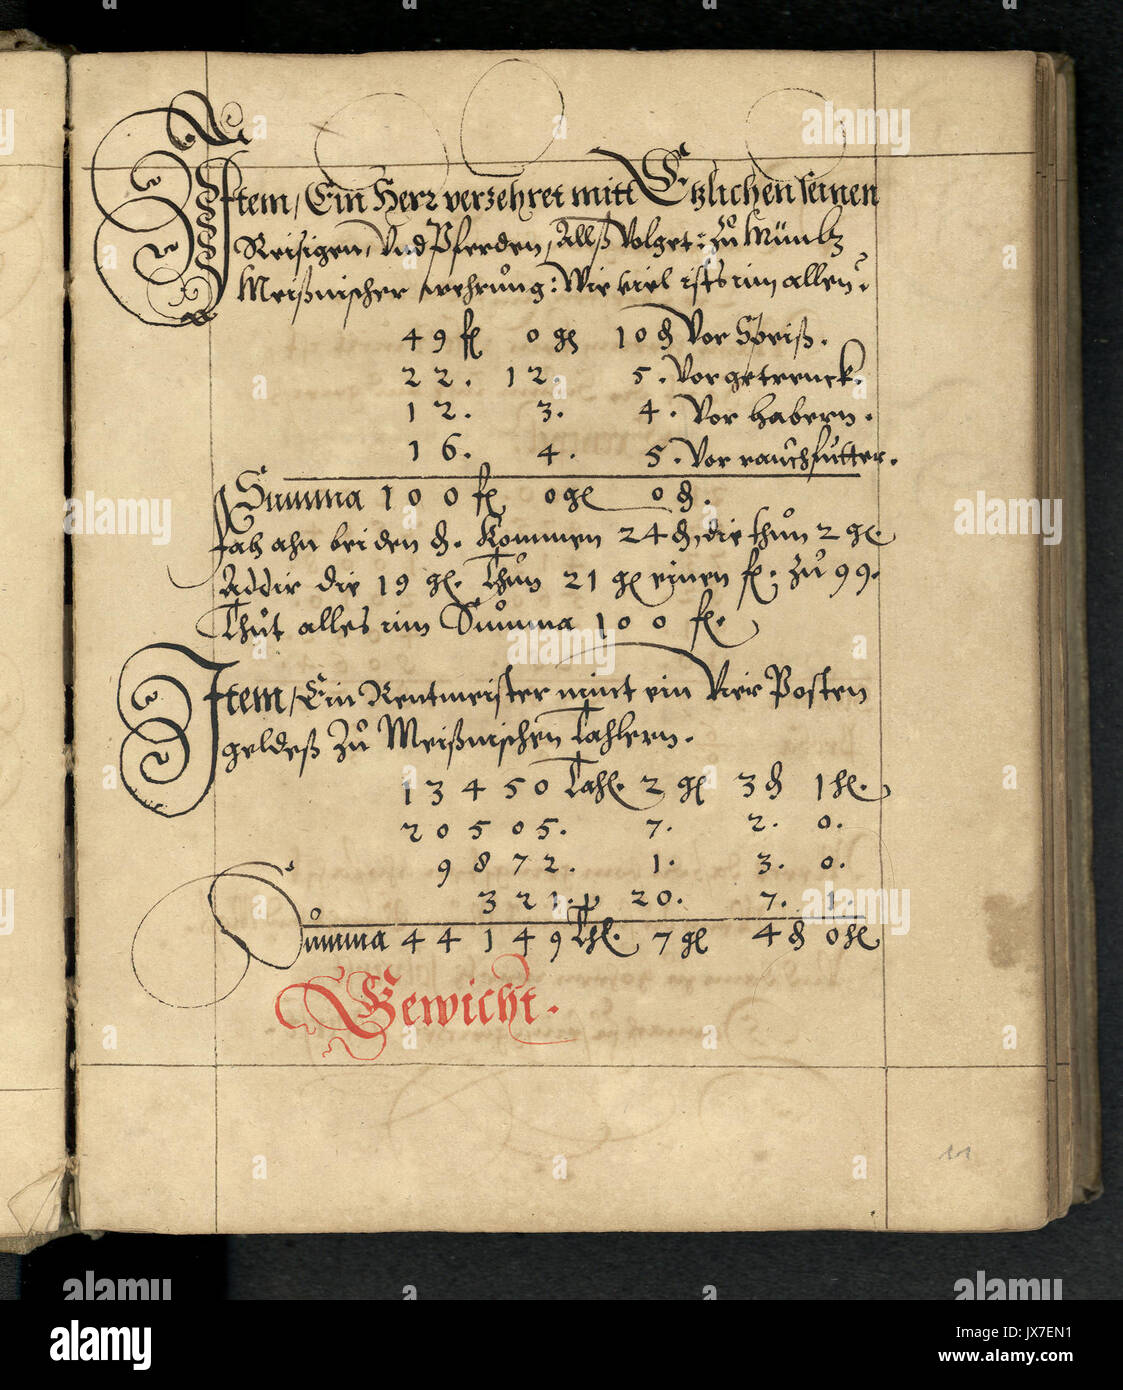 Item / Ein Herr verzehret mitt Etzlichen seinen
Reisigen, Und Pferden, Allß Volget: Zů Müntz
Meißnischer wehrůng: Wie viel ists inn allen?
49 fl 0 gl 10 ₰ Vor Speiß.
22. 12. 5. Vor getrenck.
12. 3. 4. Vor habern.
16. 4. 5. Vor rauchfůtter.
Summa 100 fl 0 gl 0 ₰.
fah ahn bei den ₰. Kommen 24 ₰, die thůn 2 gl.
Addir die 19 gl. Thůn 21 gl einen fl. Zů 99.
Thůt alles inn Sůmma 100 fl.
Item / Ein Rentmeister nimt ein Vier Posten
geldeß Zů Meißnischen Tahlern.
13450 Tahl. 2 gl 3 ₰ 1 hl.
20505. 7. 2. 0.
9872. 1. 3. 0.
321. 20. 7. 1.
Sůmma 44149 Thl. 7 gl 4 ₰ 0 hl
Gewicht.
alamy
a
alamy
Image ID: JX7EN1
www.alamy.com